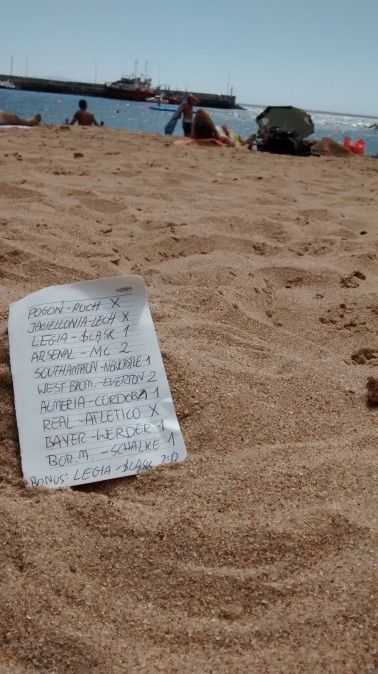 notes
POGOŃ-RUCH X
JAGIELLONIA-LECH X
LEGIA-ŚLĄSK 1
ARSENAL-MC 2
SOUTHAMPTON-NEWCASTLE 1
WEST BROM.-EVERTON 2
ALMERIA-CORDOBA 1
REAL-ATLETICO X
BAYER-WERDER 1
BOR.M.-SCHALKE 1
BONUS: LEGIA-ŚLĄSK 2:0